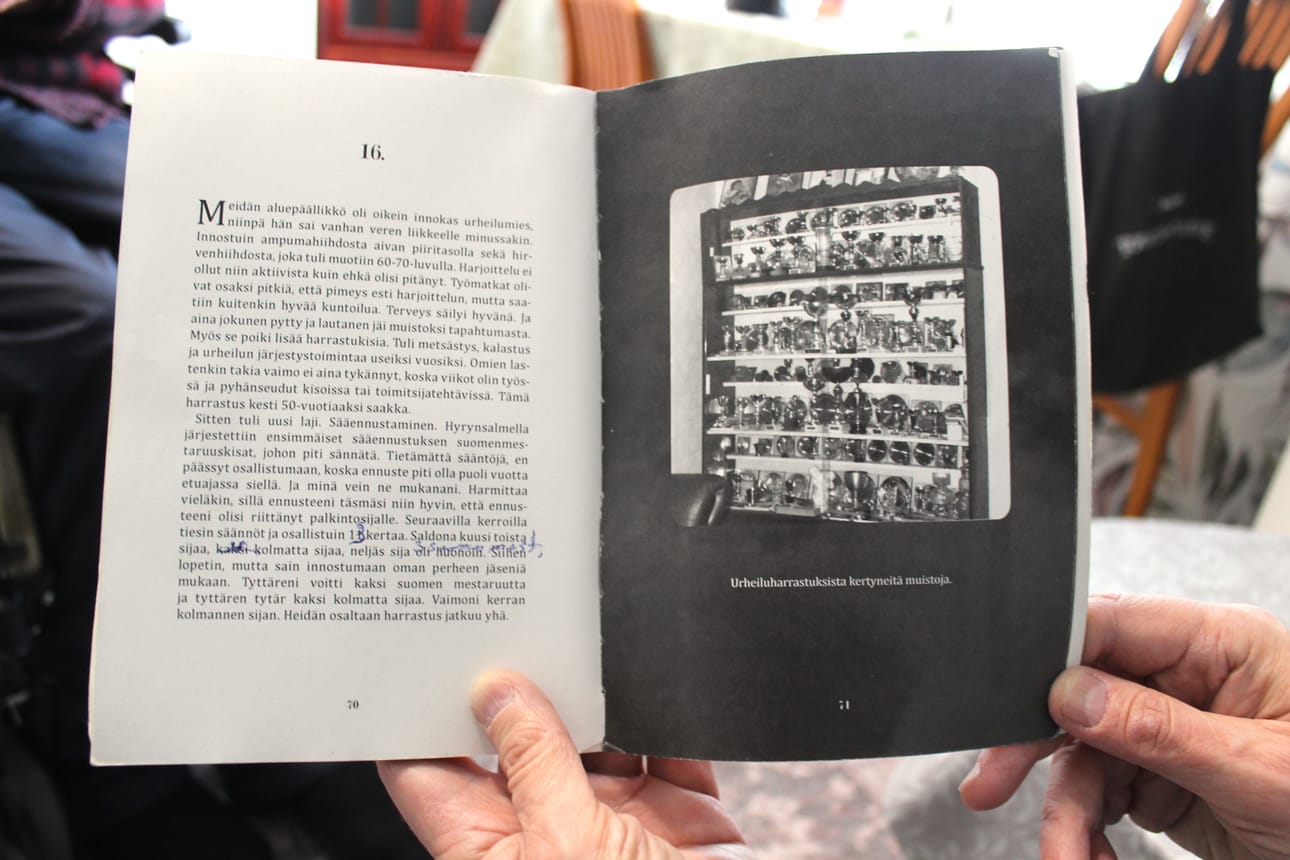 16.
Meidän aluepäällikkö oli oikein innokas urheilumies,
niinpä hän sai vanhan veren liikkeelle minussakin.
Innostuin ampumahiihdosta aivan piiritasolla sekä hir-
venhiihdosta, joka tuli muotiin 60-70-luvulla. Harjoittelu ei
ollut niin aktiivista kuin ehkä olisi pitänyt. Työmatkat oli-
vat osaksi pitkiä, että pimeys esti harjoittelun, mutta saa-
tiin kuitenkin hyvää kuntoilua. Terveys säilyi hyvänä. Ja
aina jokunen pytty ja lautanen jäi muistoksi tapahtumasta.
Myös se poiki lisää harrastuksia. Tuli metsästys, kalastus
ja urheilun järjestystoimintaa useiksi vuosiksi. Omien las-
tenkin takia vaimo ei aina tykännyt, koska viikot olin työs-
sä ja pyhänseudut kisoissa tai toimitsijatehtävissä. Tämä
harrastus kesti 50-vuotiaaksi saakka.
Sitten tuli uusi laji. Sääennustaminen. Hyrynsalmella
järjestettiin ensimmäiset sääennustuksen suomenmes-
taruuskisat, johon piti sännätä. Tietämättä sääntöjä, en
päässyt osallistumaan, koska ennuste piti olla puoli vuotta
etuajassa siellä. Ja minä vein ne mukanani. Harmittaa
vieläkin, sillä ennusteeni täsmäsi niin hyvin, että ennus-
teeni olisi riittänyt palkintosijalle. Seuraavilla kerroilla
tiesin säännöt ja osallistuin 13 kertaa. Saldona kuusi toista
sijaa, kaksi kolmatta sijaa, neljäs sija oli huonoin. Siihen
lopetin, mutta sain innostumaan oman perheen jäseniä
mukaan. Tyttäreni voitti kaksi suomen mestaruutta
ja tyttären tytär kaksi kolmatta sijaa. Vaimoni kerran
kolmannen sijan. Heidän osaltaan harrastus jatkuu yhä.
70
Urheiluharrastuksista kertyneitä muistoja.
71